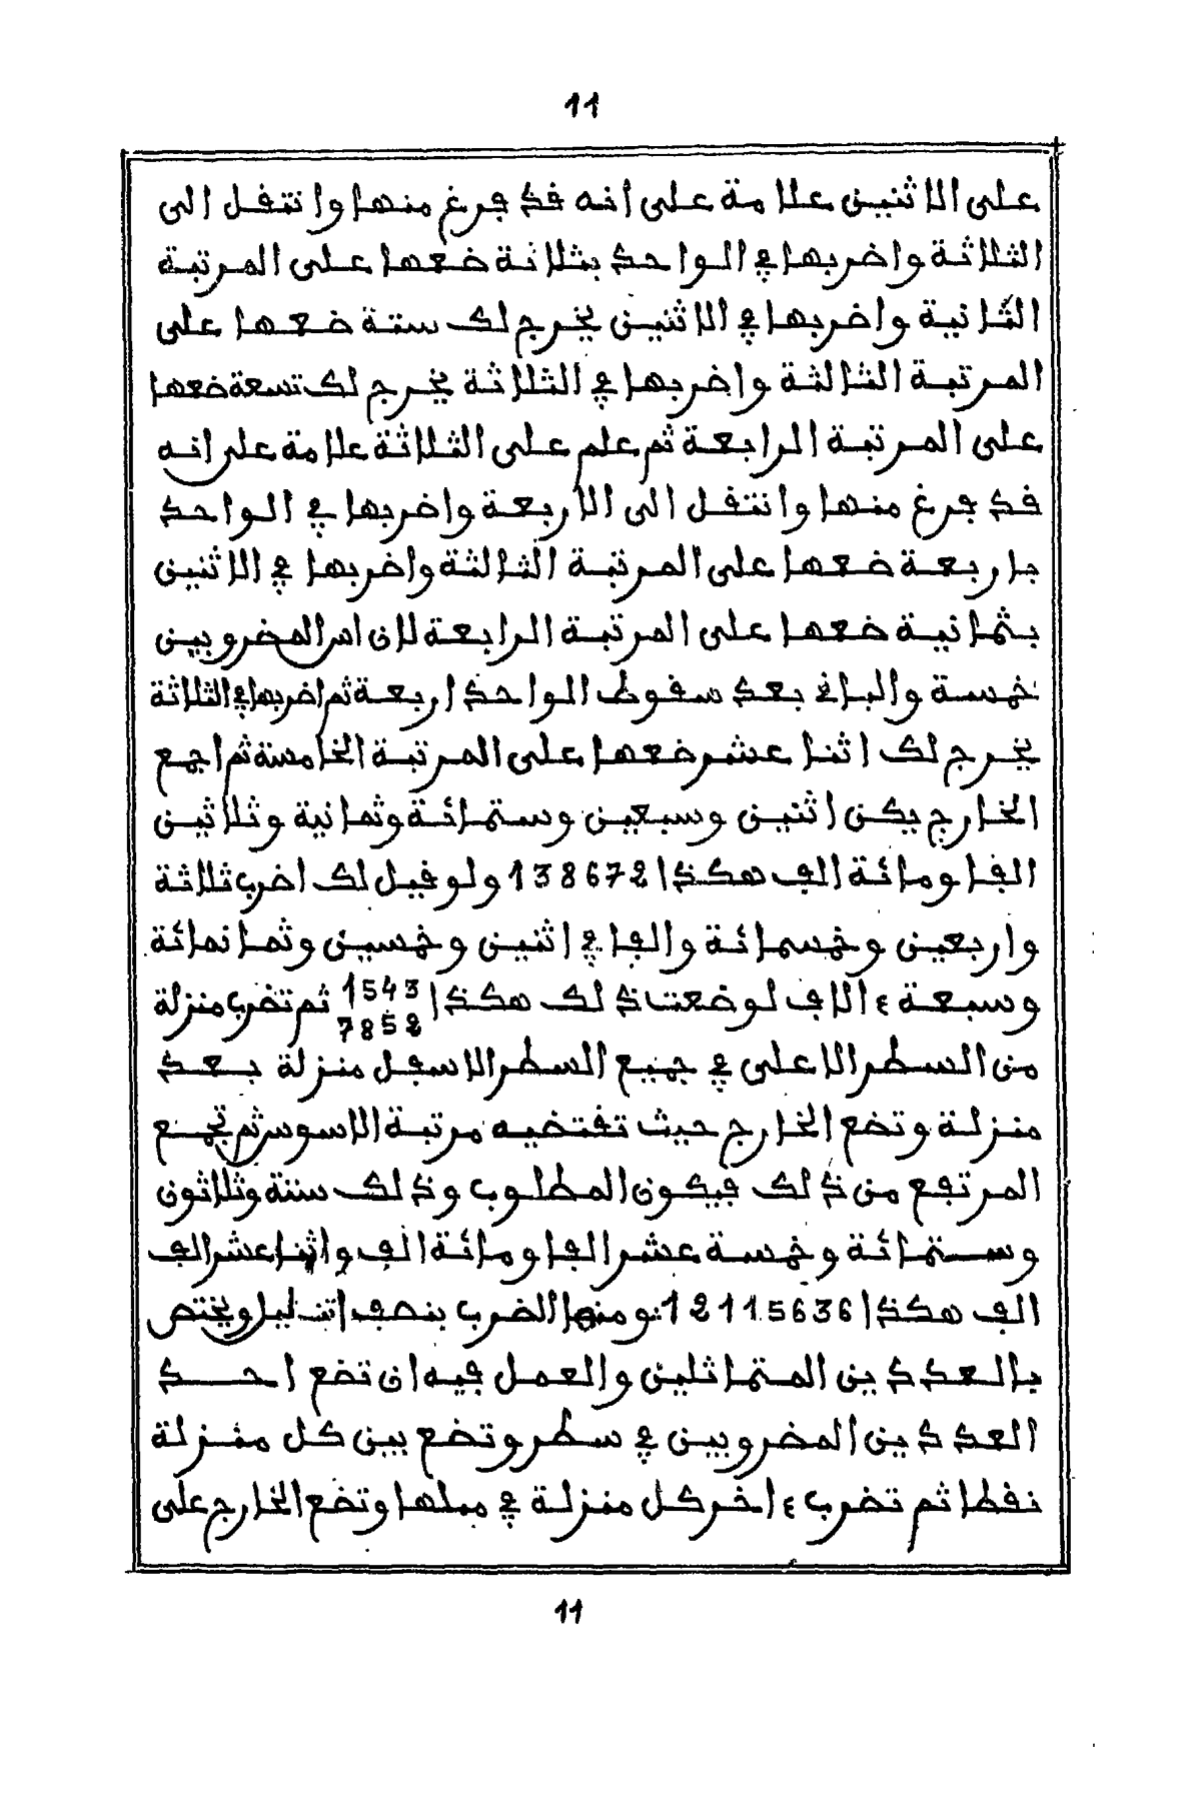 11
على الاثنين علامة على انه قد فرغ منها وانتقل الى
الثلاثة واضربها في الواحد بثلاثة ضعها على المرتبة
الثانية واضربها في الاثنين يخرج لك ستة ضعها على
المرتبة الثالثة واضربها في الثلاثة يخرج لك تسعة ضعها
على المرتبة الرابعة ثم علم على الثلاثة علامة على انه
قد فرغ منها وانتقل الى الاربعة واضربها في الواحد
باربعة ضعها على المرتبة الثالثة واضربها في الاثنين
بثمانية ضعها على المرتبة الرابعة لان اس المضروبين
خمسة والباقي بعد سقوط الواحد اربعة ثم اضربها في الثلاثة
يخرج لك اثنا عشر ضعها على المرتبة الخامسة ثم اجمع
الخارج يكن اثنين وسبعين وستمائة وثمانية وثلاثين
الفا ومائة الف هكذا 138672 ولو قيل لك اضرب ثلاثة
واربعين وخمسمائة والفا في اثنين وخمسين وثمانمائة
وسبعة ءالاف لوضعت ذلك هكذا 1543 ثم تضرب منزلة
7852
من السطر الاعلى في جميع السطر الاسفل منزلة بعد
منزلة وتضع الخارج حيث تقتضيه مرتبة الاسوس ثم تجمع
المرتفع من ذلك فيكون المطلوب وذلك ستة وثلاثون
وستمائة وخمسة عشر الفا ومائة الف واثنا عشر الف
الف هكذا 12115636 ومنها الضرب بنصف ويختص
بالعددين المتماثلين والعمل فيه ان تضع احد
العددين المضروبين في سطر وتضع بين كل منزلة
نقطا ثم تضرب ءاخر كل منزلة في مثلها وتضع الخارج على
11